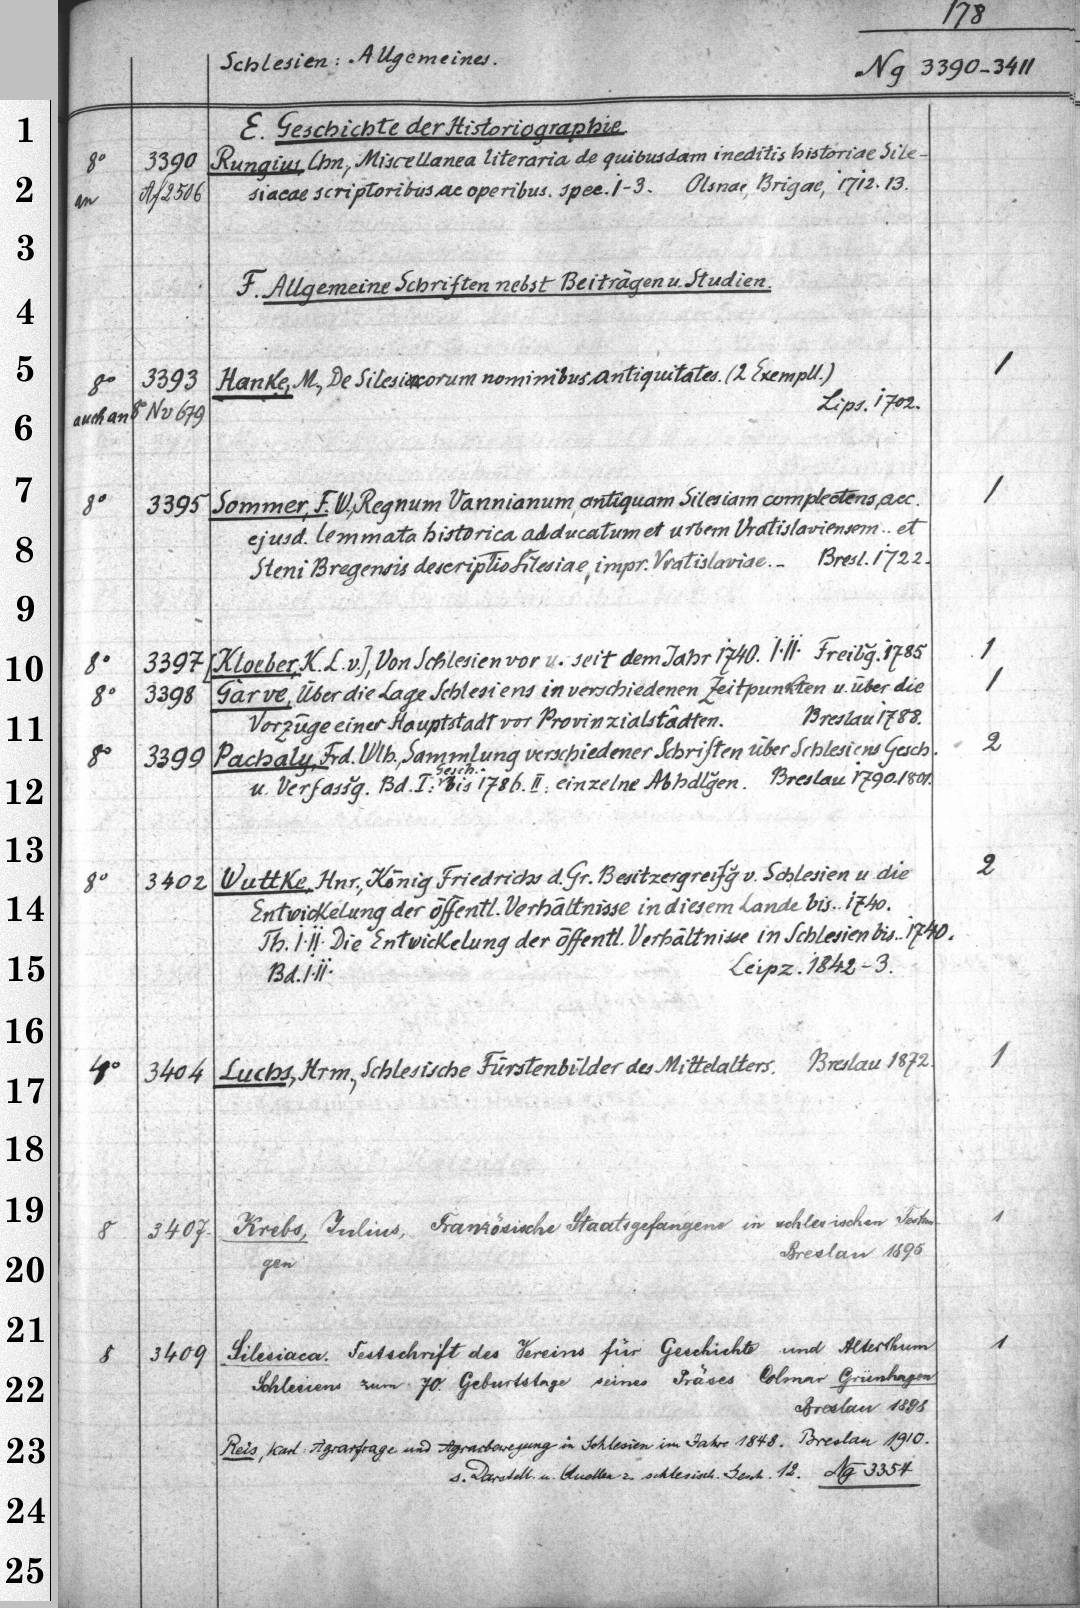 178
Schlesien: Allgemeines.
Ng 3390-3411
1
E. Geschichte der Historiographie
8° 3390 Rungius, Chn., Miscellanea literaria de quibusdam ineditis historiae Sile-
2
an Af 2506 siacae scriptoribus ac operibus. spec. 1-3. Olsnae, Brigae, 1712. 13.
3
F. Allgemeine Schriften nebst Beiträgen u. Studien.
4
5
8° 3393 Hanke, M., De Silesiacorum nominibus antiquitates. (2 Exempll.) 1
auch an 8° Nv 679 Lips. 1702.
6
7
8° 3395 Sommer, F. W., Regnum Vannianum, antiquam Silesiam complectens, acc. 1
ejusd. lemmata historica ad ducatum et urbem Vratislaviensem .. et
8
Steni Bregensis descriptio Silesiae, impr. Vratislaviae. - Bresl. 1722.
9
10
8° 3397 [Kloeber, K. L. v.], Von Schlesien vor u. seit dem Jahr 1740. I.II. Freibg. 1785 1
8° 3398 Garve, Über die Lage Schlesiens in verschiedenen Zeitpunkten u. über die 1
11
Vorzüge einer Hauptstadt vor Provinzialstädten. Breslau 1788.
8° 3399 Pachaly, Frd. Wlh., Sammlung verschiedener Schriften über Schlesiens Gesch. 2
12
u. Verfassg. Bd. I: Gesch. bis 1786. II: einzelne Abhdlgen. Breslau 1790.1801.
13
8° 3402 Wuttke, Hnr., König Friedrichs d. Gr. Besitzergreifg v. Schlesien u. die 2
14
Entwickelung der öffentl. Verhältnisse in diesem Lande bis .. 1740.
Th. I.II. Die Entwickelung der öffentl. Verhältnisse in Schlesien bis .. 1740.
15
Bd. I.II. Leipz. 1842-3.
16
17
4° 3404 Luchs, Hrm., Schlesische Fürstenbilder des Mittelalters. Breslau 1872. 1
18
19
8 3407 Krebs, Julius, Französische Staatsgefangene in schlesischen Festun- 1
gen Breslau 1895
20
21
8 3409 Silesiaca. Festschrift des Vereins für Geschichte und Alterthum 1
22
Schlesiens zum 70. Geburtstage seines Präses Colmar Grünhagen
Breslau 1898
23
Reis, Karl Agrarfrage und Agrarbewegung in Schlesien im Jahre 1848. Breslau 1910.
s. Darstell. u. Quellen z. schlesisch. Gesch. 12. Ng 3354
24
25